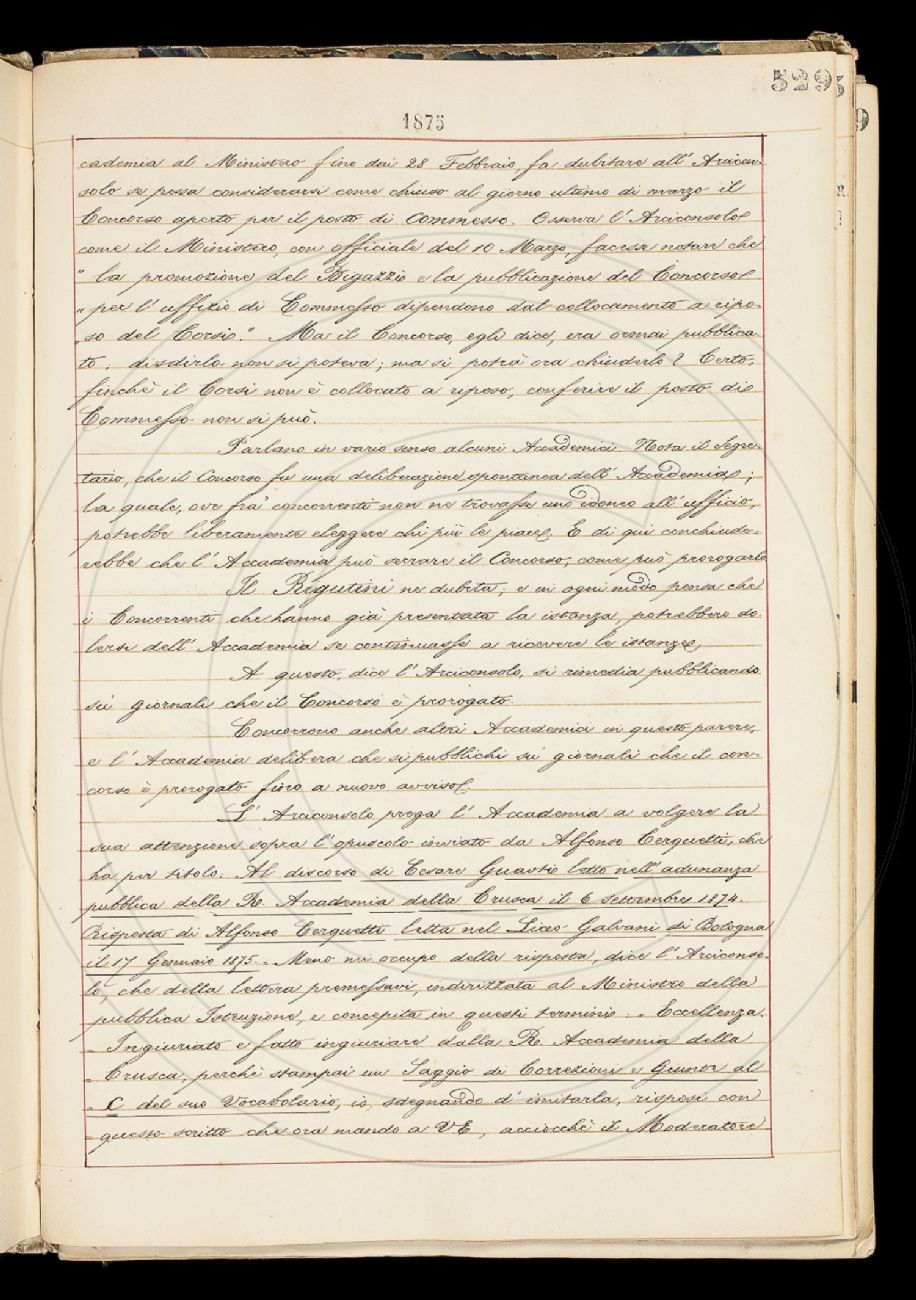 529
1875
cademia al Ministero fino dai 28 Febbraio, fa dubitare all'Arcicon-
solo se possa considerarsi come chiuso al giorno ultimo di marzo il
Concorso aperto per il posto di Commesso. Osserva l'Arciconsolo
come il Ministero, con officiale del 10 Marzo, facesse notare che
" la promozione del Bigazzi e la pubblicazione del Concorso
" per l'uffizio di Commesso dipendono dal collocamento a ripo-
" so del Corsi". Ma il Concorso, egli dice, era ormai pubblica-
to: disdirlo non si poteva; ma si potrà ora chiuderlo? Certo,
finchè il Corsi non è collocato a riposo, conferire il posto di
Commesso non si può.
Parlano in vario senso alcuni Accademici. Nota il Segre-
tario, che il Concorso fu una deliberazione spontanea dell'Accademia;
la quale, ove frà concorrenti non ne trovasse uno idoneo all'ufficio,
potrebbe liberamente eleggere chi più le piace. E di qui conchiude-
rebbe che l'Accademia può serrare il Concorso, come può prorogarlo.
Il Rigutini ne dubita; e in ogni modo pensa che
i Concorrenti che hanno già presentata la istanza, potrebbero do-
lersi dell'Accademia se continuasse a ricevere le istanze.
A questo, dice l'Arciconsolo, si rimedia pubblicando
sui giornali che il Concorso è prorogato.
Concorrono anche altri Accademici in questo parere,
e l'Accademia delibera che si pubblichi su' giornali che il con-
corso è prorogato fino a nuovo avviso.
L'Arciconsolo prega l'Accademia a volgere la
sua attenzione sopra l'opuscolo inviato da Alfonso Cerquetti, che
ha per titolo. Al discorso di Cesare Guasti letto nell'adunanza
pubblica della R. Accademia della Crusca il 6 settembre 1874.
Risposta di Alfonso Cerquetti letta nel Liceo Galvani di Bologna
il 17 Gennaio 1875. - Meno mi occupo della risposta, dice l'Arciconso-
lo, che della lettera premessavi, indirizzata al Ministro della
pubblica Istruzione, e concepita in questi termini: - Eccellenza.
- Ingiuriato e fatto ingiuriare dalla R. Accademia della
- Crusca, perchè stampai un Saggio di Correzioni e Giunte al
- C del suo Vocabolario, io, sdegnando d'imitarla, risposi con
- questo scritto che ora mando a V.E., acciocchè il Moderatore